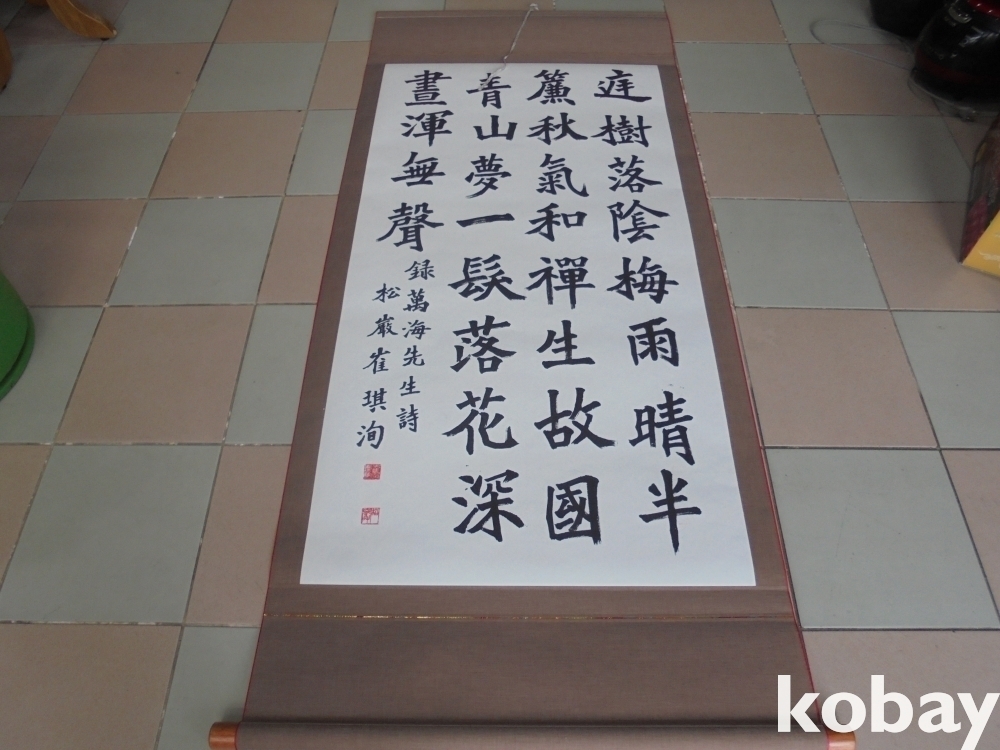 庭樹落陰梅雨晴半
簾秋氣和禪生故國
青山夢一髮落花深
晝渾無聲
録萬海先生詩
松巖崔琪洵
kobay